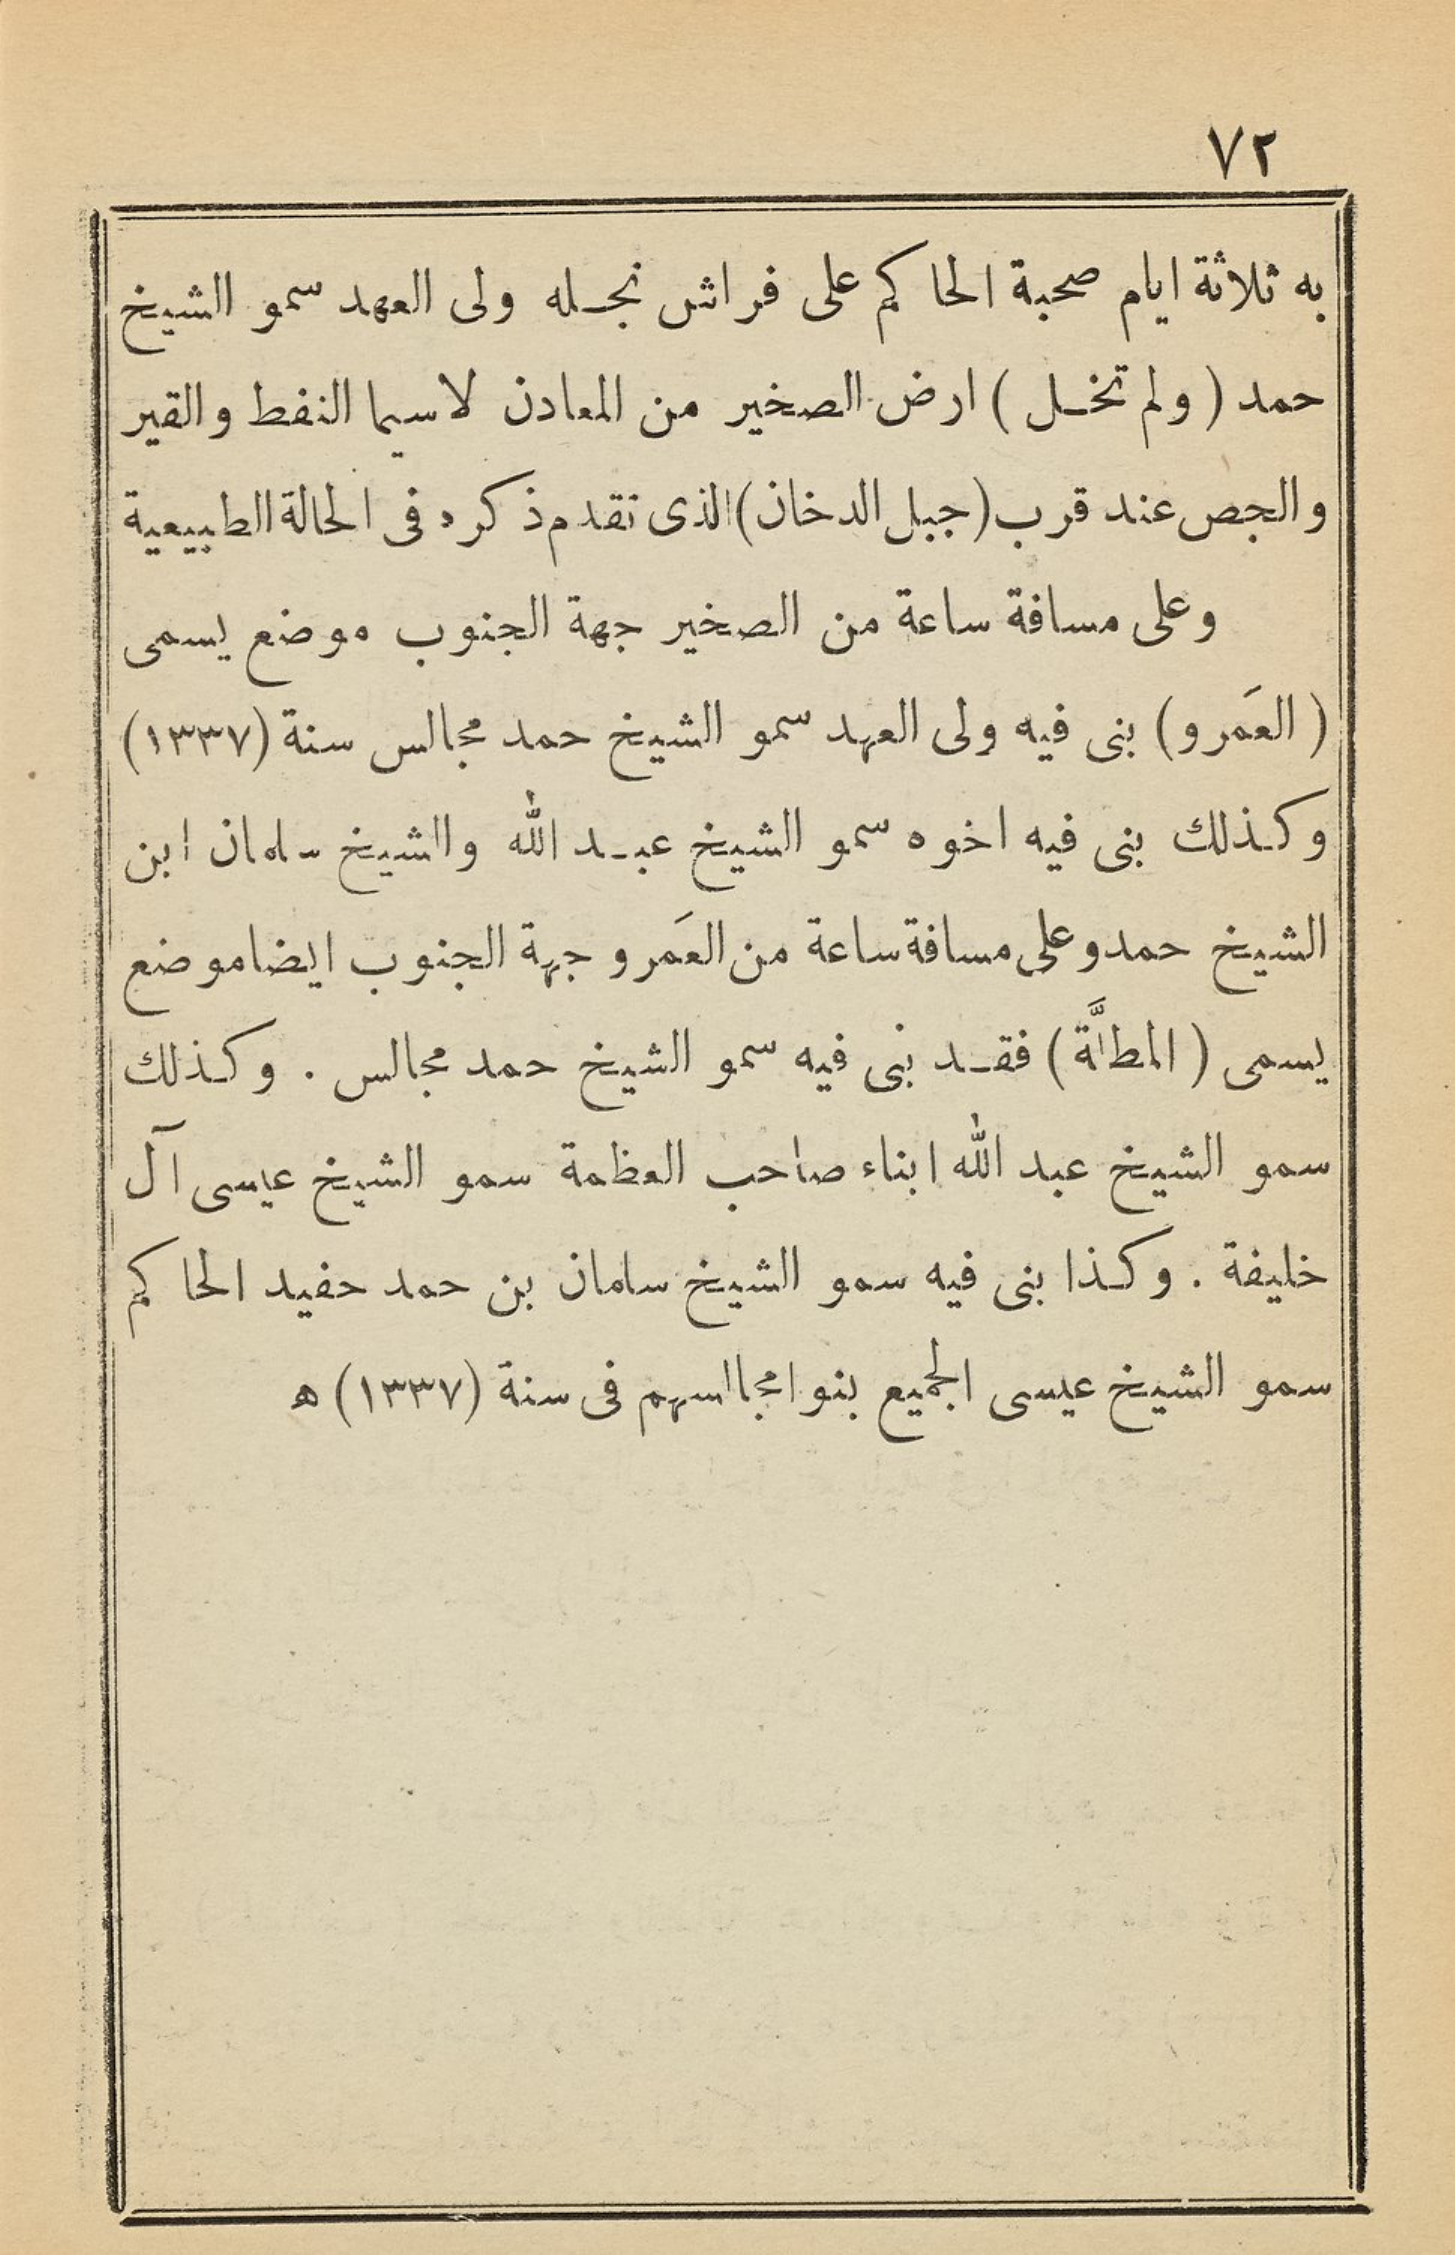 ٧٢
به ثلاثة ايام صحبة الحاكم على فراش نجله ولى العهد سمو الشيخ
حمد ( ولم تخل ) ارض الصخير من المعادن لاسيما النفط والقير
والجص عند قرب (جبل الدخان) الذى تقدم ذكره فى الحالة الطبيعية
وعلى مسافة ساعة من الصخير جهة الجنوب موضع يسمى
( العَمرو ) بنى فيه ولى العهد سمو الشيخ حمد مجالس سنة (١٣٣٧)
وكذلك بنى فيه اخوه سمو الشيخ عبد الله والشيخ سلمان ابن
الشيخ حمد وعلى مسافة ساعة من العَمرو جهة الجنوب ايضا موضع
يسمى ( ) فقد بنى فيه سمو الشيخ حمد مجالس . وكذلك
سمو الشيخ عبد الله ابناء صاحب العظمة سمو الشيخ عيسى آل
خليفة . وكذا بنى فيه سمو الشيخ سلمان بن حمد حفيد الحاكم
سمو الشيخ عيسى الجميع بنوا مجالسهم فى سنة (١٣٣٧) ه